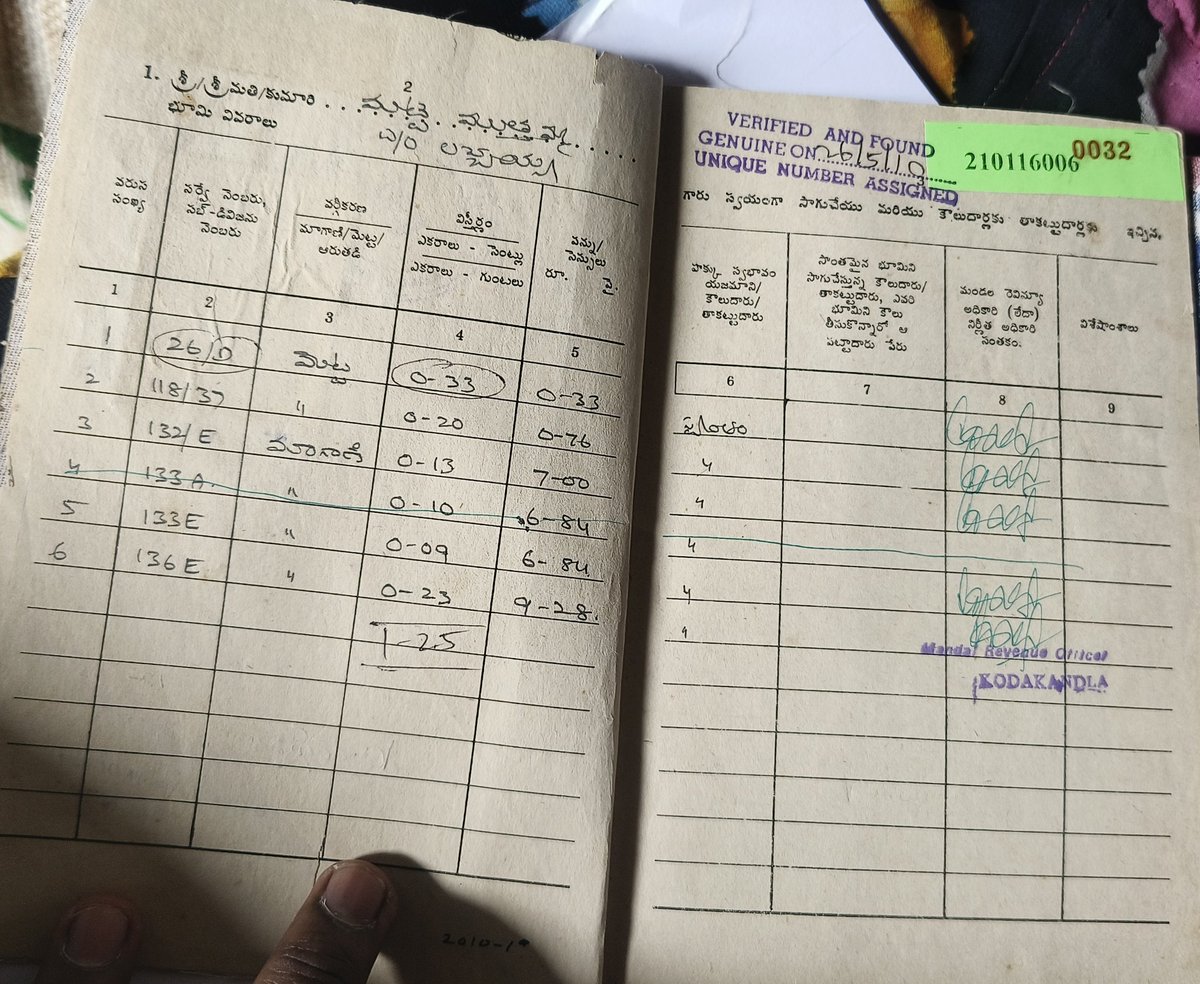 2
1. శ్రీ/శ్రీమతి/కుమారి . . . ముత్తమ్మ . . . . .
భూమి వివరాలు
వరుస సంఖ్య
సర్వే నెంబరు, సబ్-డివిజను నెంబరు
వర్గీకరణ మాగాణి/మెట్ట/ఆరుతడి
విస్తీర్ణం ఎకరాలు - సెంట్లు ఎకరాలు - గుంటలు
పన్ను/సెస్సులు రూ. పై.
1 2 3 4 5
1 26/D మెట్ట 0-33 0-33
2 118/37 " 0-20 0-76
3 132/E మాగాణి 0-13 7-00
4 133A. " 0-10 6-84
5 133E " 0-09 6-84
6 136E " 0-23 9-28.
1-25
2010-1
VERIFIED AND FOUND
GENUINE ON
UNIQUE NUMBER ASSIGNED
210116006 0032
గారు స్వయంగా సాగుచేయు మరియు కౌలుదార్లకు తాకట్టుదార్లకు ఇచ్చిన
హక్కు స్వభావం యజమాని/కౌలుదారు/తాకట్టుదారు
సొంతమైన భూమిని సాగుచేస్తున్న కౌలుదారు/తాకట్టుదారు, ఎవరి భూమిని కౌలు తీసుకొన్నారో ఆ పట్టాదారు పేరు
మండల రెవిన్యూ అధికారి (లేదా) నిర్ణీత అధికారి సంతకం.
విశేషాంశాలు
6 7 8 9
Mandal Revenue Officer
KODAKANDLA